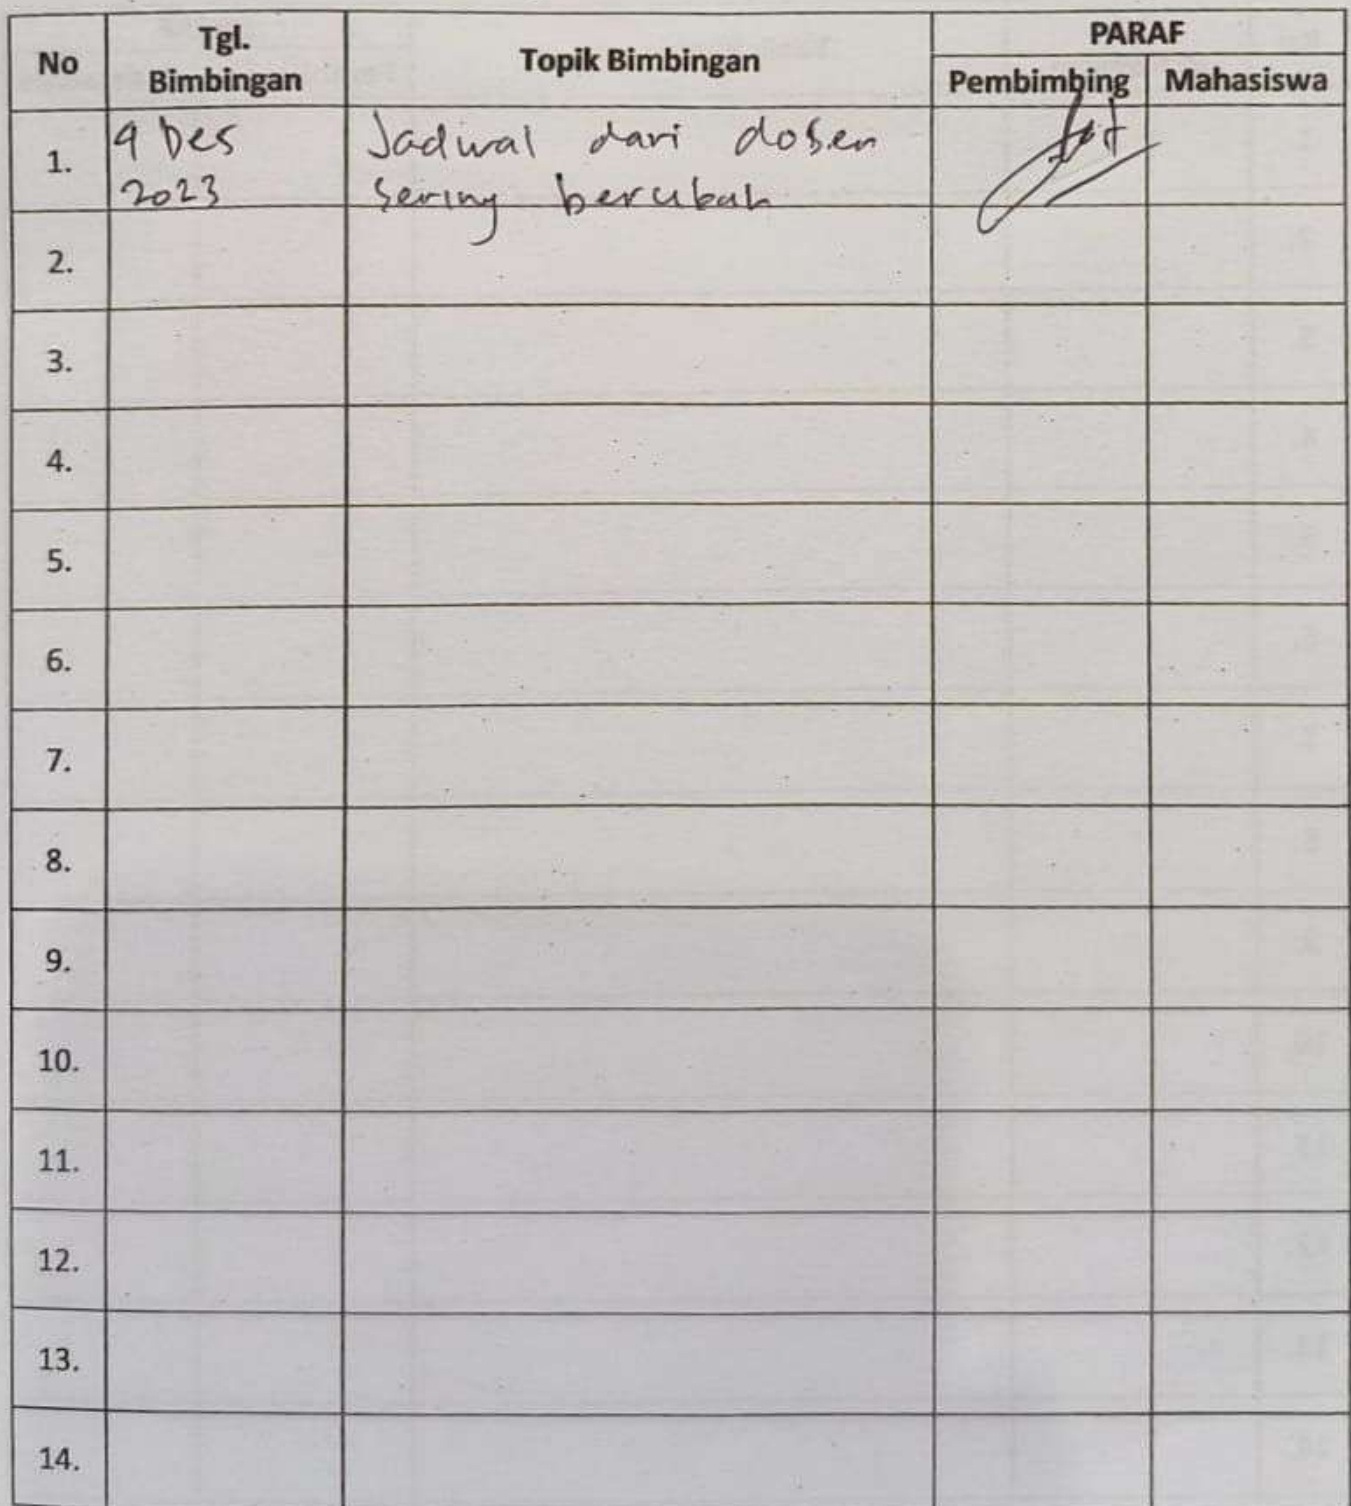 No Tgl. Bimbingan Topik Bimbingan PARAF
Pembimbing Mahasiswa
1. 9 Des Jadwal dari dosen
2023 sering berubah
2.
3.
4.
5.
6.
7.
8.
9.
10.
11.
12.
13.
14.